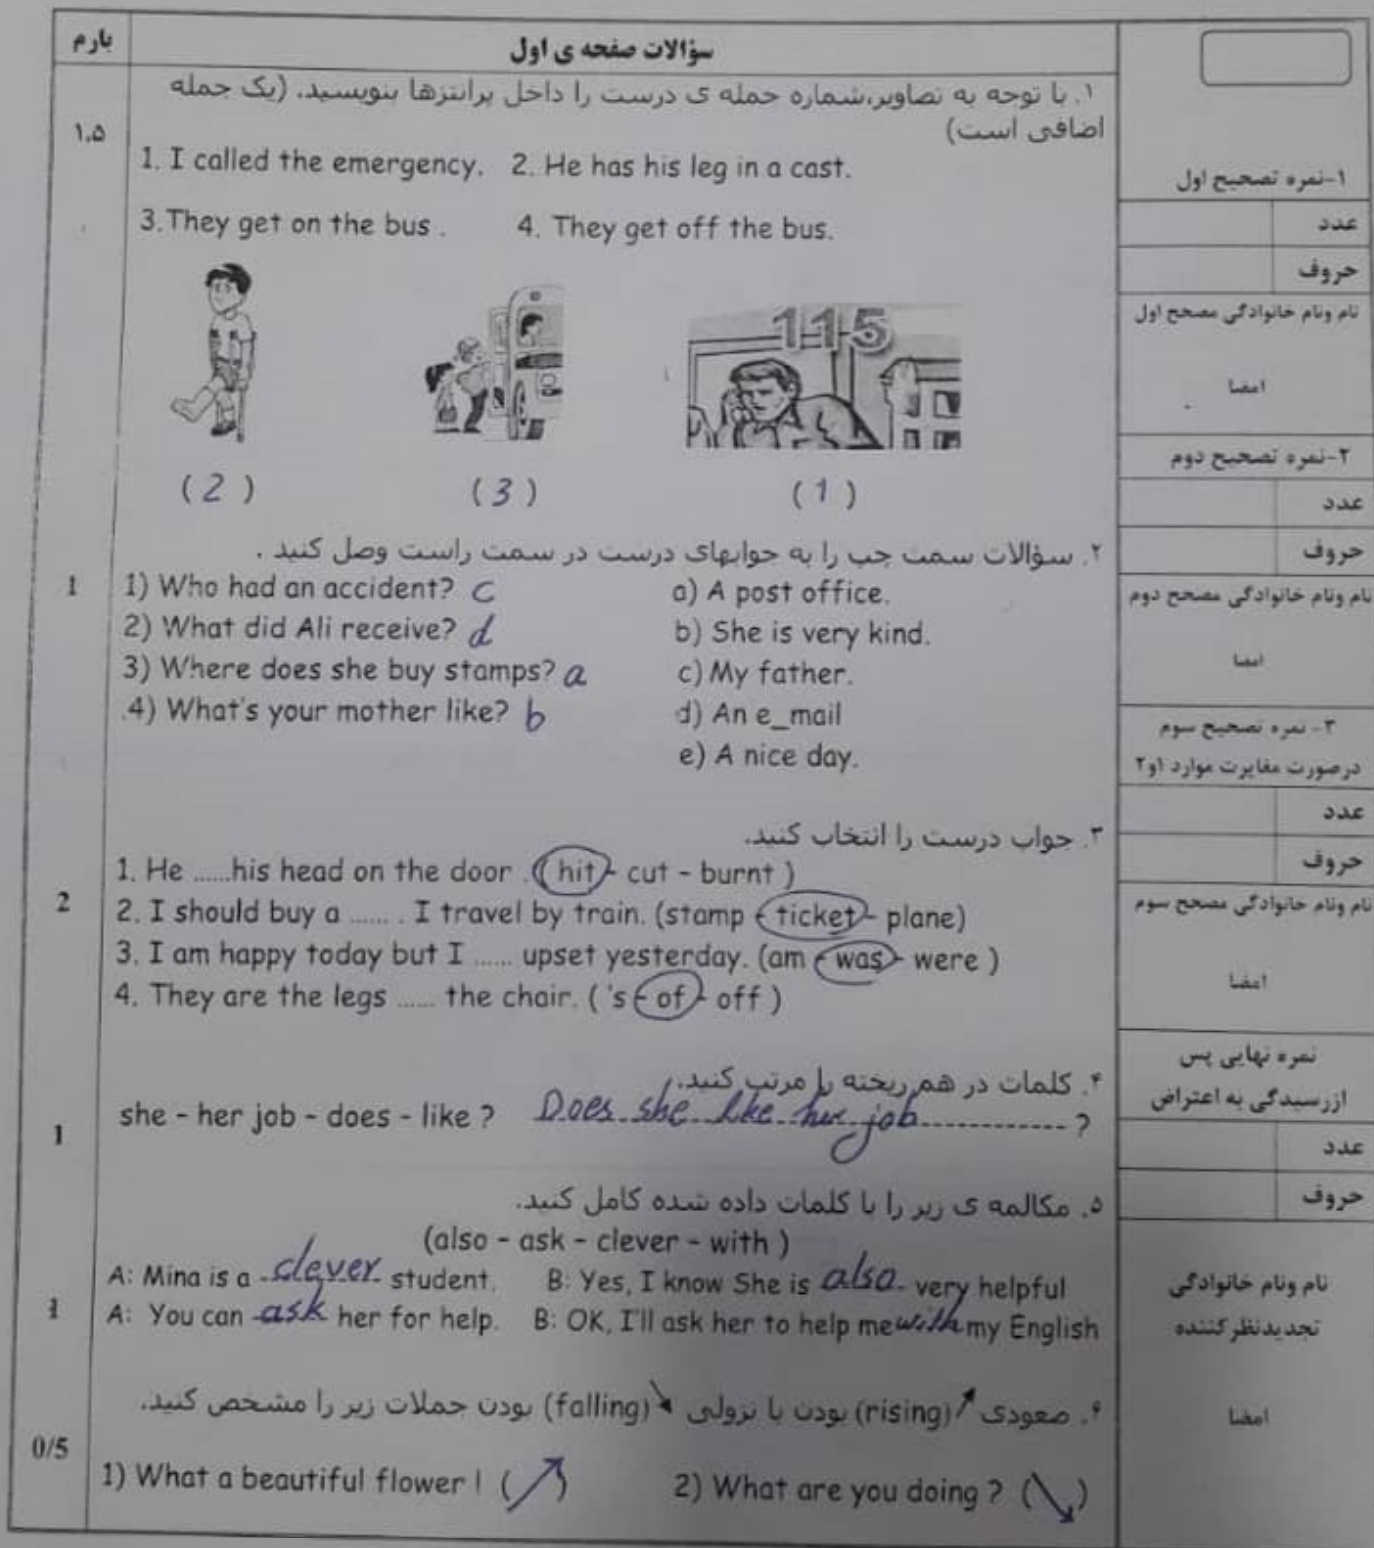 بارم
سؤالات صفحه ی اول
۱. با توجه به تصاویر،شماره جمله ی درست را داخل پرانتزها بنویسید. (یک جمله
اضافی است)
۱.۵
1. I called the emergency. 2. He has his leg in a cast.
3.They get on the bus . 4. They get off the bus.
115
(2) (3) (1)
۲. سؤالات سمت چپ را به جوابهای درست در سمت راست وصل کنید .
1
1) Who had an accident? c a) A post office.
2) What did Ali receive? d b) She is very kind.
3) Where does she buy stamps? a c) My father.
4) What's your mother like? b d) An e_mail
e) A nice day.
۳. جواب درست را انتخاب کنید.
2
1. He ......his head on the door . ( hit - cut - burnt )
2. I should buy a ...... . I travel by train. (stamp - ticket - plane)
3. I am happy today but I ...... upset yesterday. (am - was - were )
4. They are the legs ...... the chair. ( 's - of - off )
۴. کلمات در هم ریخته را مرتب کنید.
1
she - her job - does - like ? Does she like her job ?
۵. مکالمه ی زیر را با کلمات داده شده کامل کنید.
(also - ask - clever - with )
1
A: Mina is a clever student. B: Yes, I know She is also very helpful
A: You can ask her for help. B: OK, I'll ask her to help me with my English
۶. صعودی ↗(rising) بودن یا نزولی ↘(falling) بودن جملات زیر را مشخص کنید.
0/5
1) What a beautiful flower ! (↗) 2) What are you doing ? (↘)
۱-نمره تصحیح اول
عدد
حروف
نام ونام خانوادگی مصحح اول
امضا
۲-نمره تصحیح دوم
عدد
حروف
نام ونام خانوادگی مصحح دوم
امضا
۳- نمره تصحیح سوم
درصورت مغایرت موارد ۱و۲
عدد
حروف
نام ونام خانوادگی مصحح سوم
امضا
نمره نهایی پس
ازرسیدگی به اعتراض
عدد
حروف
نام ونام خانوادگی
تجدیدنظرکننده
امضا